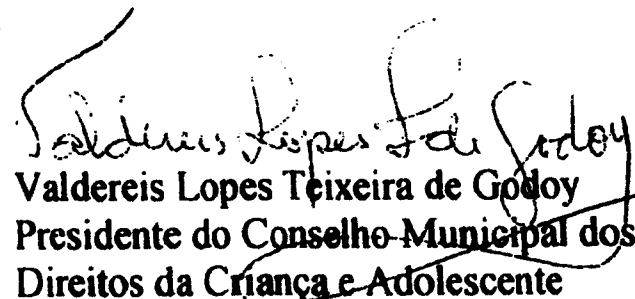 Valdereis Lopes T. de Godoy
Valdereis Lopes Teixeira de Godoy
Presidente do Conselho Municipal dos
Direitos da Criança e Adolescente